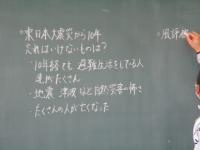 ○東日本大震災から10年
忘れはいけないものは?
・10年経ても避難生活をしている人
達がたくさん
・地震 津波など自然災害の怖さ
・たくさんの人が亡くなった
○風評